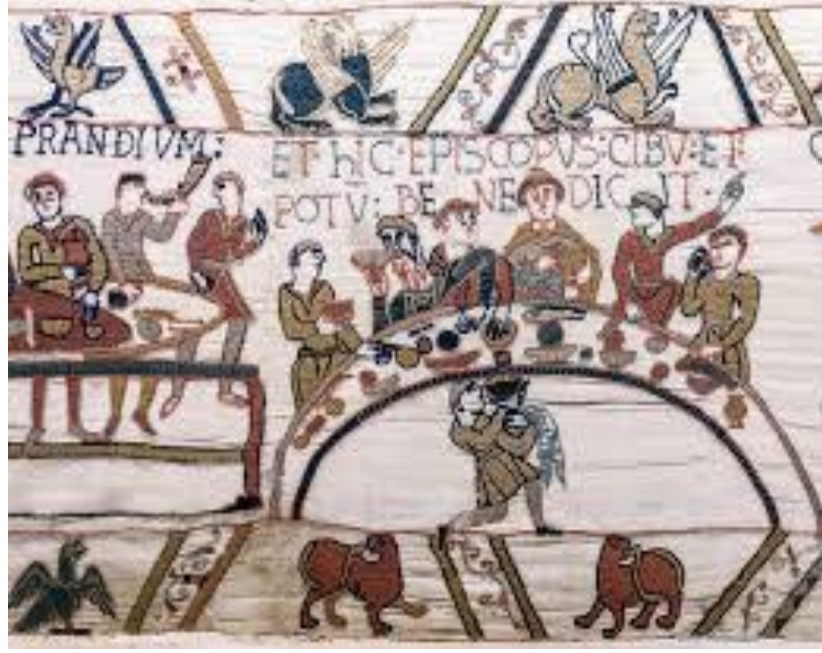 PRANDIVM:
ET hIC·EPISCOPVS:CIBV:ET·
POTV: BE NE DIC IT·